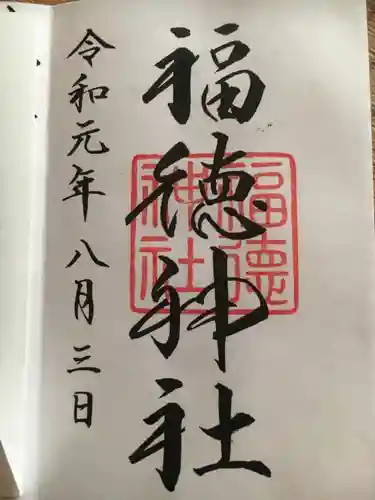 福徳神社
福徳神社
令和元年八月三日